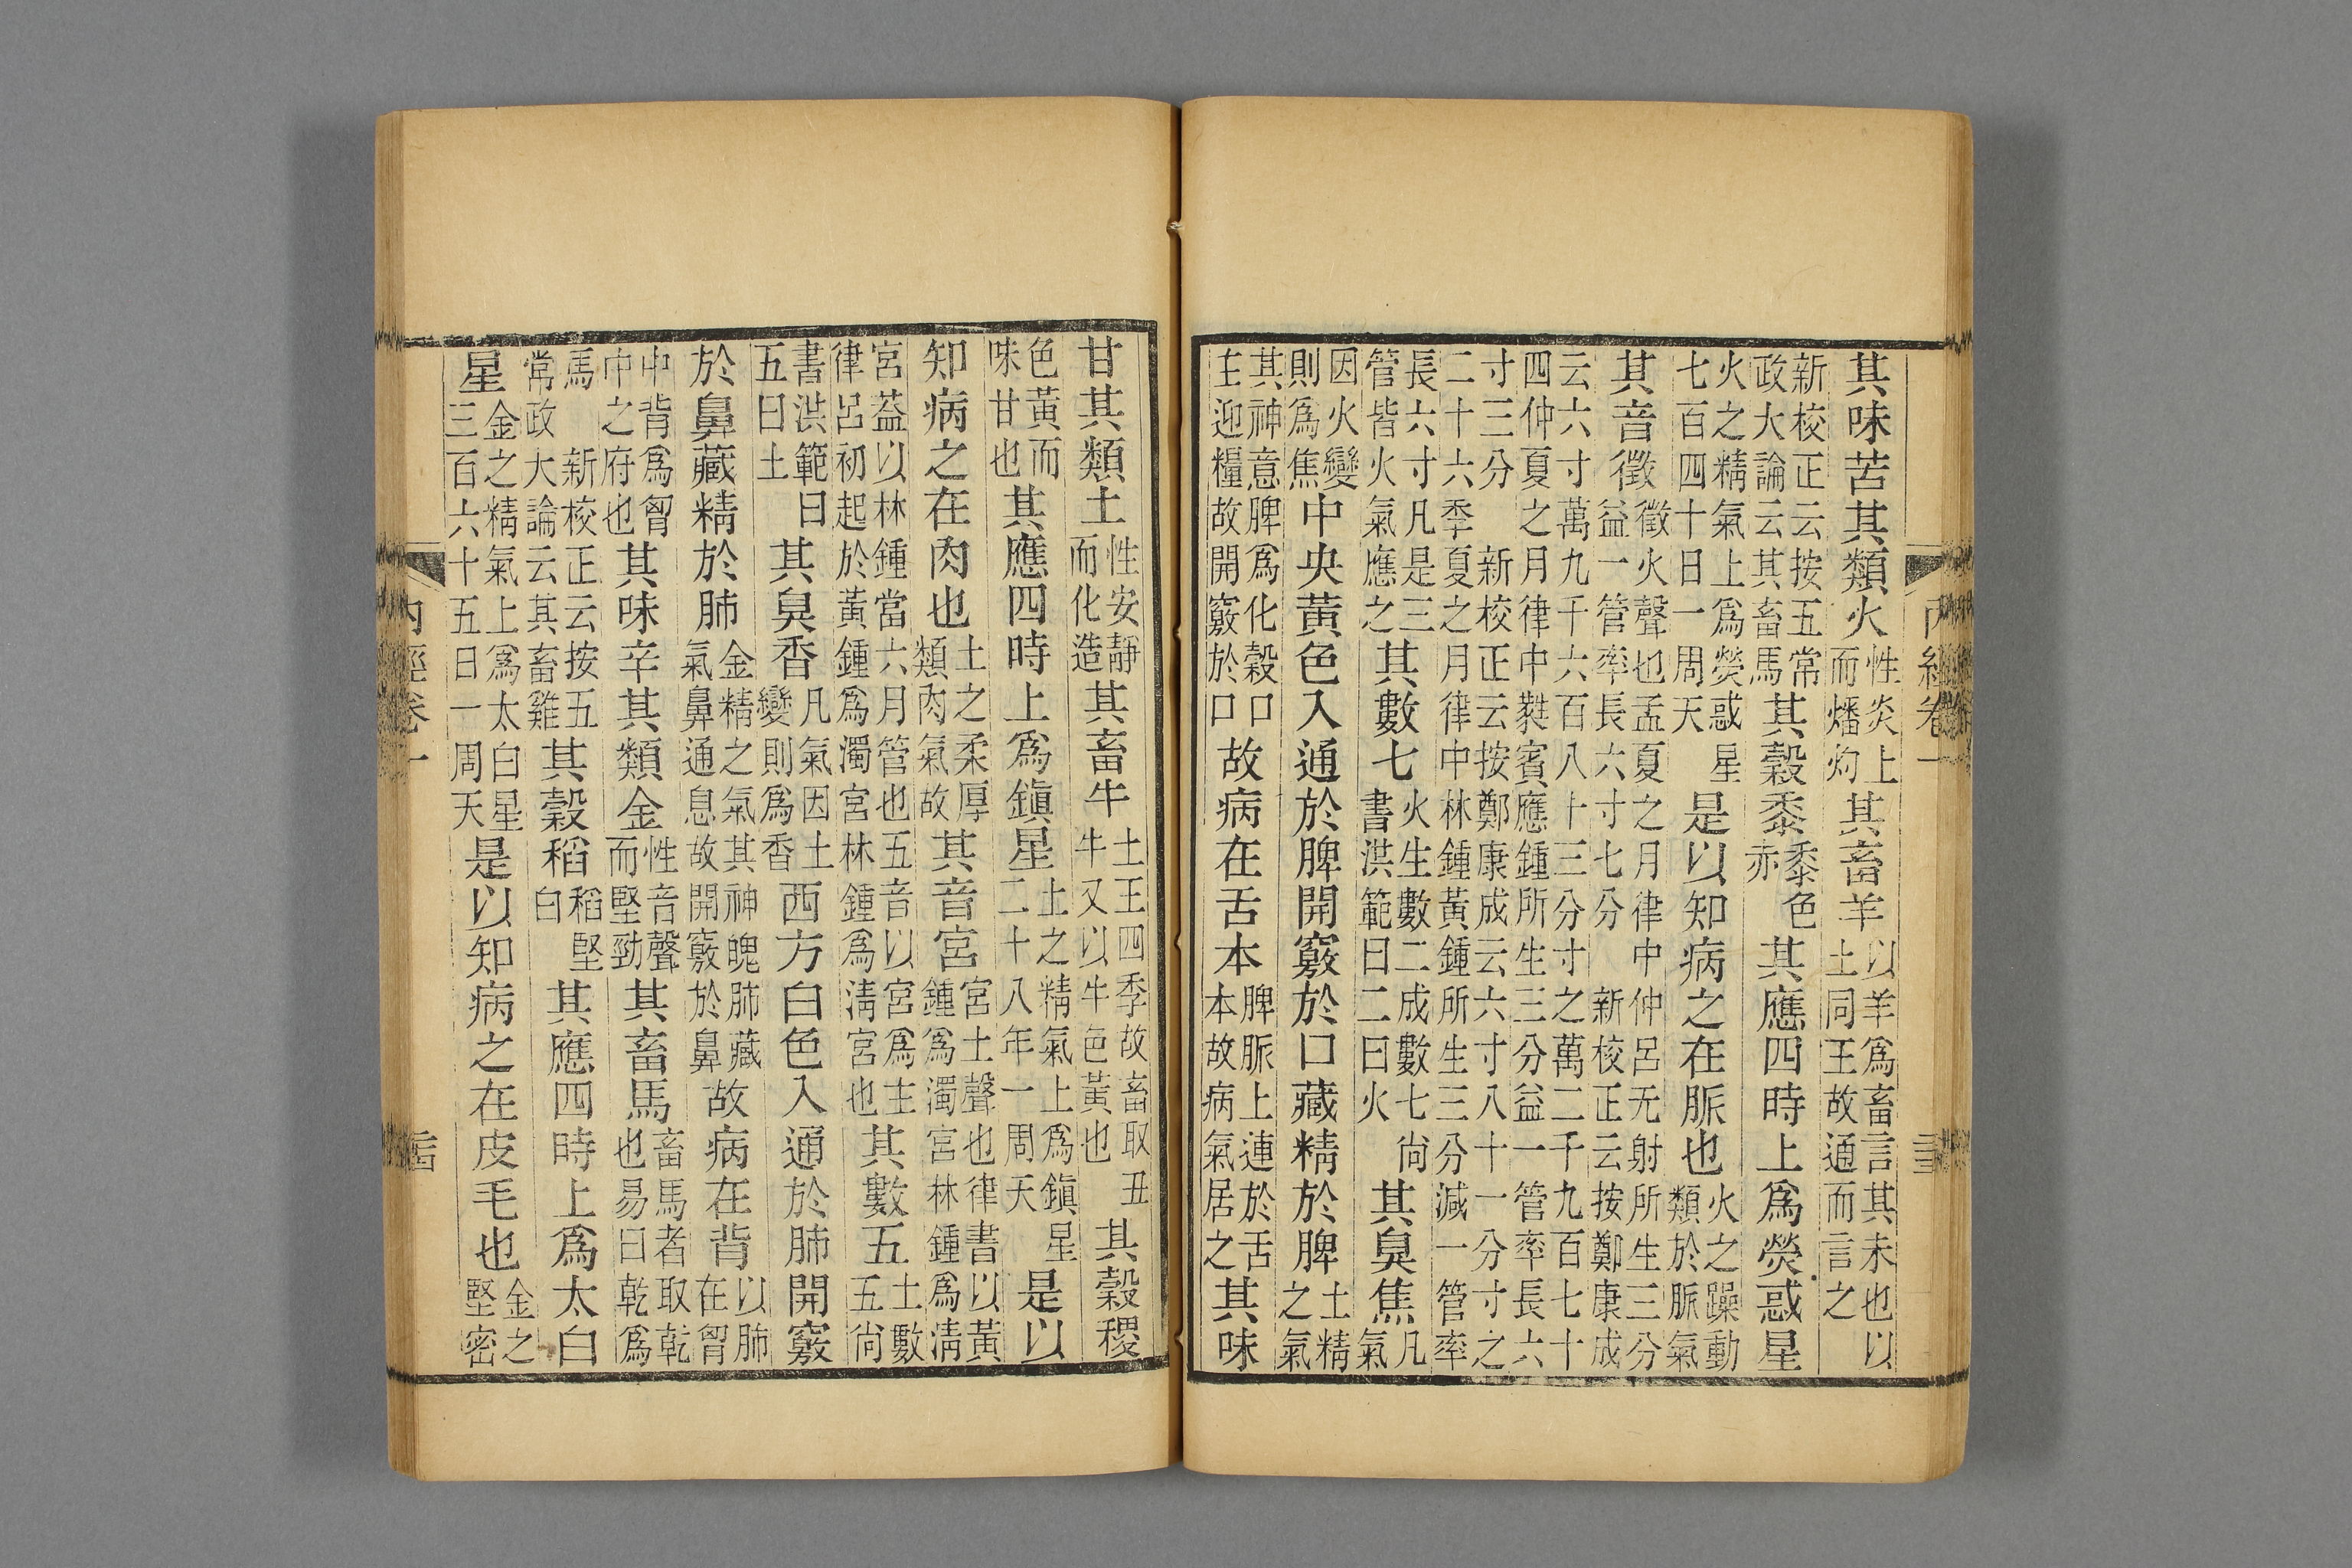 其味苦其類火性炎上而燔灼其畜羊以羊爲畜言其未也以土同王故通而言之
新校正云按五常政大論云其畜馬其穀黍黍色赤其應四時上爲熒惑星
火之精氣上爲熒惑星七百四十日一周天是以知病之在脈也火之躁動類於脈氣
其音徵徵火聲也孟夏之月律中仲呂无射所生三分益一管率長六寸七分 新校正云按鄭康成
云六寸萬九千六百八十三分寸之萬二千九百七十四仲夏之月律中蕤賓應鍾所生三分益一管率長六
寸三分 新校正云按鄭康成云六寸八十一分寸之二十六季夏之月律中林鍾黃鍾所生三分減一管率
長六寸凡是三管皆火氣應之其數七火生數二成數七尚書洪範曰二曰火其臭焦凡氣
因火變則爲焦中央黃色入通於脾開竅於口藏精於脾土精之氣
其神意脾爲化穀口主迎糧故開竅於口故病在舌本脾脈上連於舌本故病氣居之其味
甘其類土性安靜而化造其畜牛土王四季故畜取丑牛又以牛色黃也其穀稷
色黃而味甘也其應四時上爲鎮星土之精氣上爲鎮星二十八年一周天是以
知病之在肉也土之柔厚類肉氣故其音宮宮土聲也律書以黃鍾爲濁宮林鍾爲清
宮蓋以林鍾當六月管也五音以宮爲主律呂初起於黃鍾爲濁宮林鍾爲清宮也其數五土數五尚
書洪範曰五曰土其臭香凡氣因土變則爲香西方白色入通於肺開竅
於鼻藏精於肺金精之氣其神魄肺藏氣鼻通息故開竅於鼻故病在背以肺在胷
中背爲胷中之府也其味辛其類金性音聲而堅勁其畜馬畜馬者取乾也易曰乾爲
馬 新校正云按五常政大論云其畜雞其穀稻稻堅白其應四時上爲太白
星金之精氣上爲太白星三百六十五日一周天是以知病之在皮毛也金之堅密